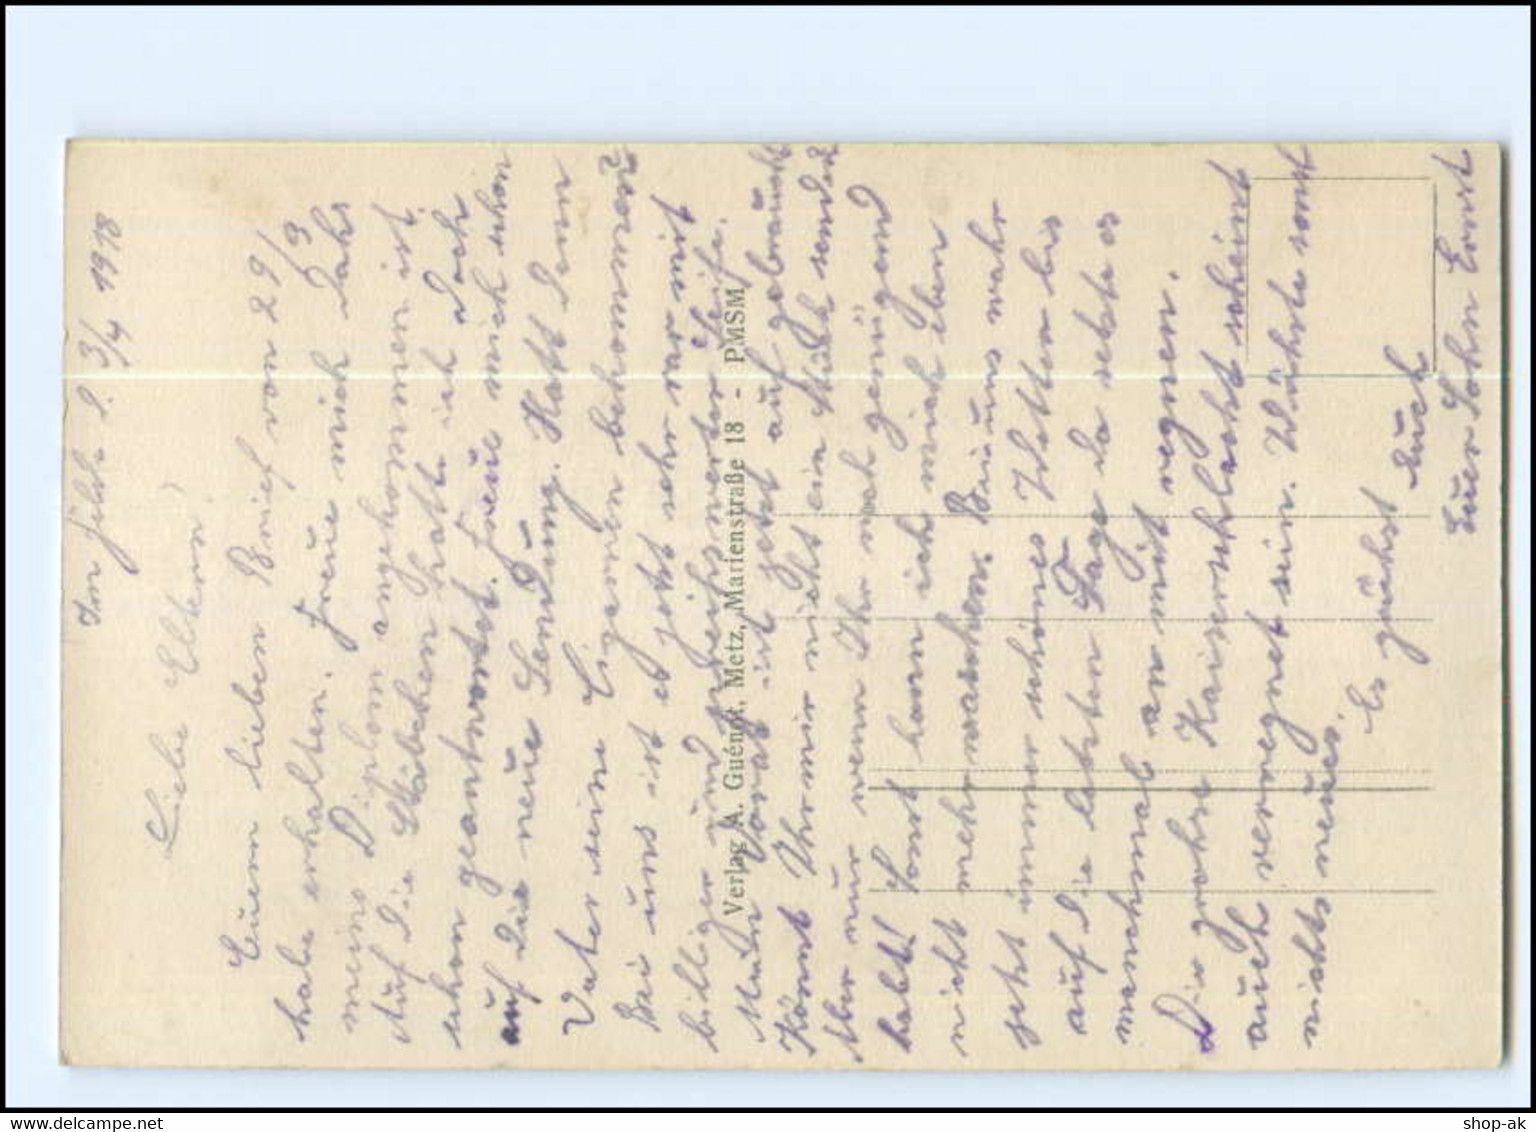 Im Felde d. 3/4 1918
Liebe Eltern!
Euern lieben Brief von 29/3
habe erhalten. Freue mich daß
meine Diplom angekommen ist.
Auf die Stäbchen hatte ich doch
schon geantwortet. Freue mich schon
auf die neue Sendung. Hatt denn
Vater seine Eigenen bekommen?
Bei uns ist es jetzt sehr rar mit
billiger und preißwerter Seife.
Mein Vorrat ist jetzt auf gebraucht
Könnt Ihr mir nicht ein Stück senden
Aber nur wenn Ihr noch genügend
habt! Sonst kann ich mich eben
nicht mehr waschen. Bei uns wahr
jetzt immer schönes Wetter bis
auf die letzten Tage da setzte es
manchmal an mit regnen.
Die große Kaiserschlacht scheint
auch verregnet sein. Wüßte sonst
nichts neues.
Es grüßt Euch
Euer Sohn Ernst
Verlag A. Guénot, Metz, Marienstraße 18 - PMSM
shop-ak